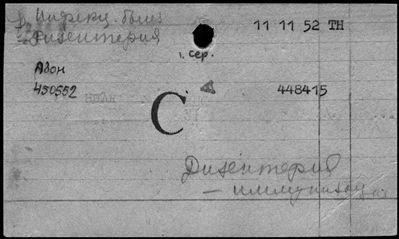 Инфекц. болез
Дизентерия
11 11 52 ТН
1. сер.
Абон
450552
448415
С
Дизентерия
— иммунизац